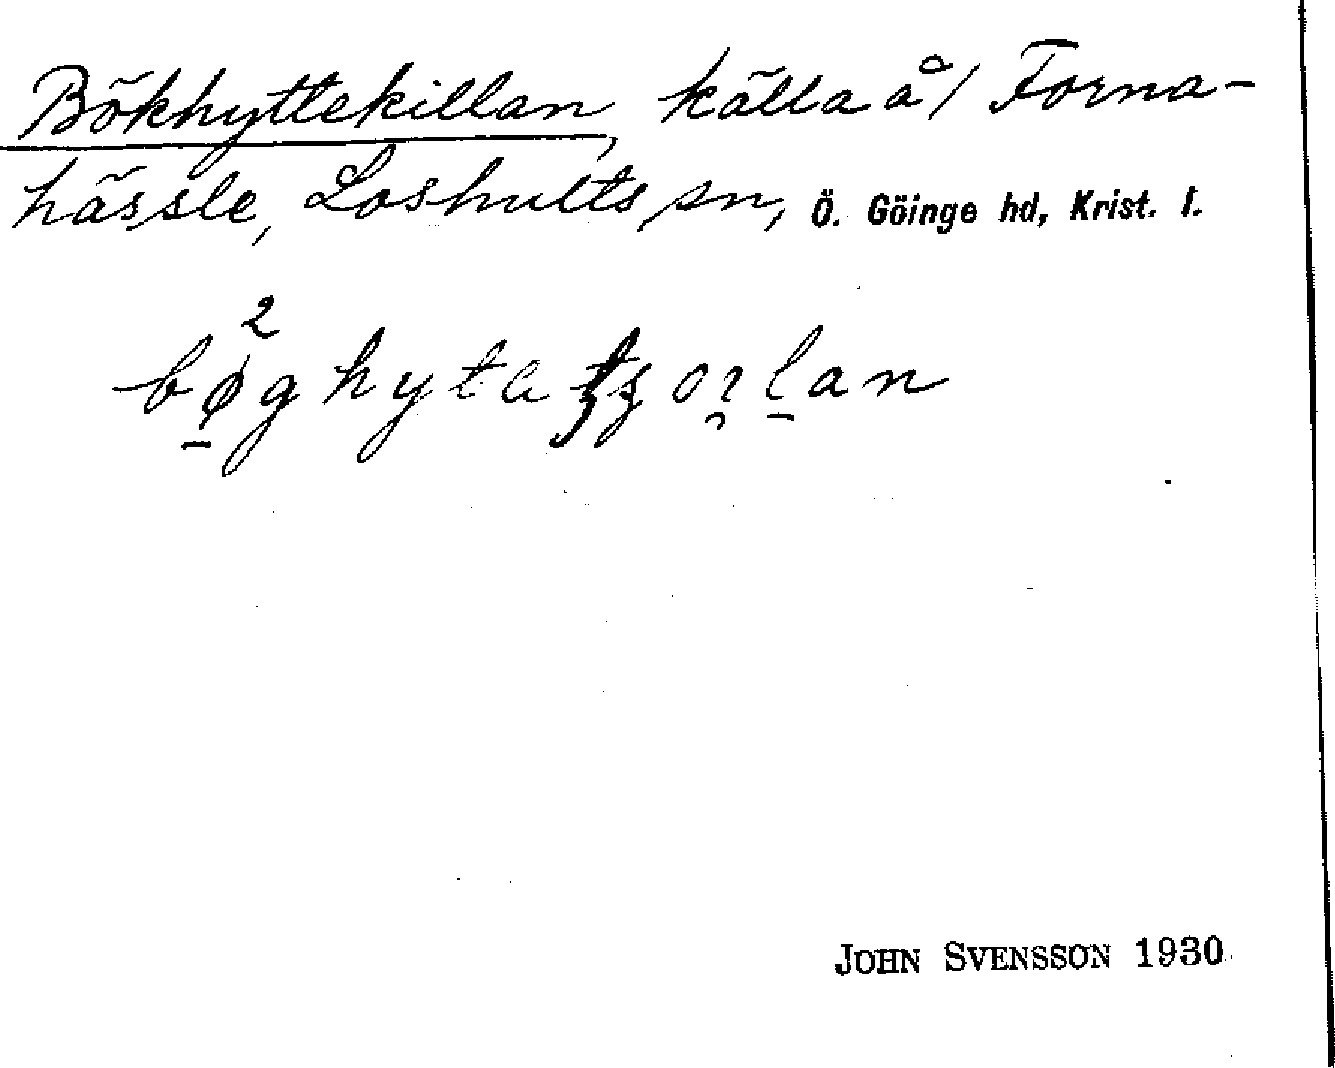 Bökhyttekillan, källa å/ Forna-
hässle, Loshults sn, Ö. Göinge hd, Krist. l.
JOHN SVENSSON 1930